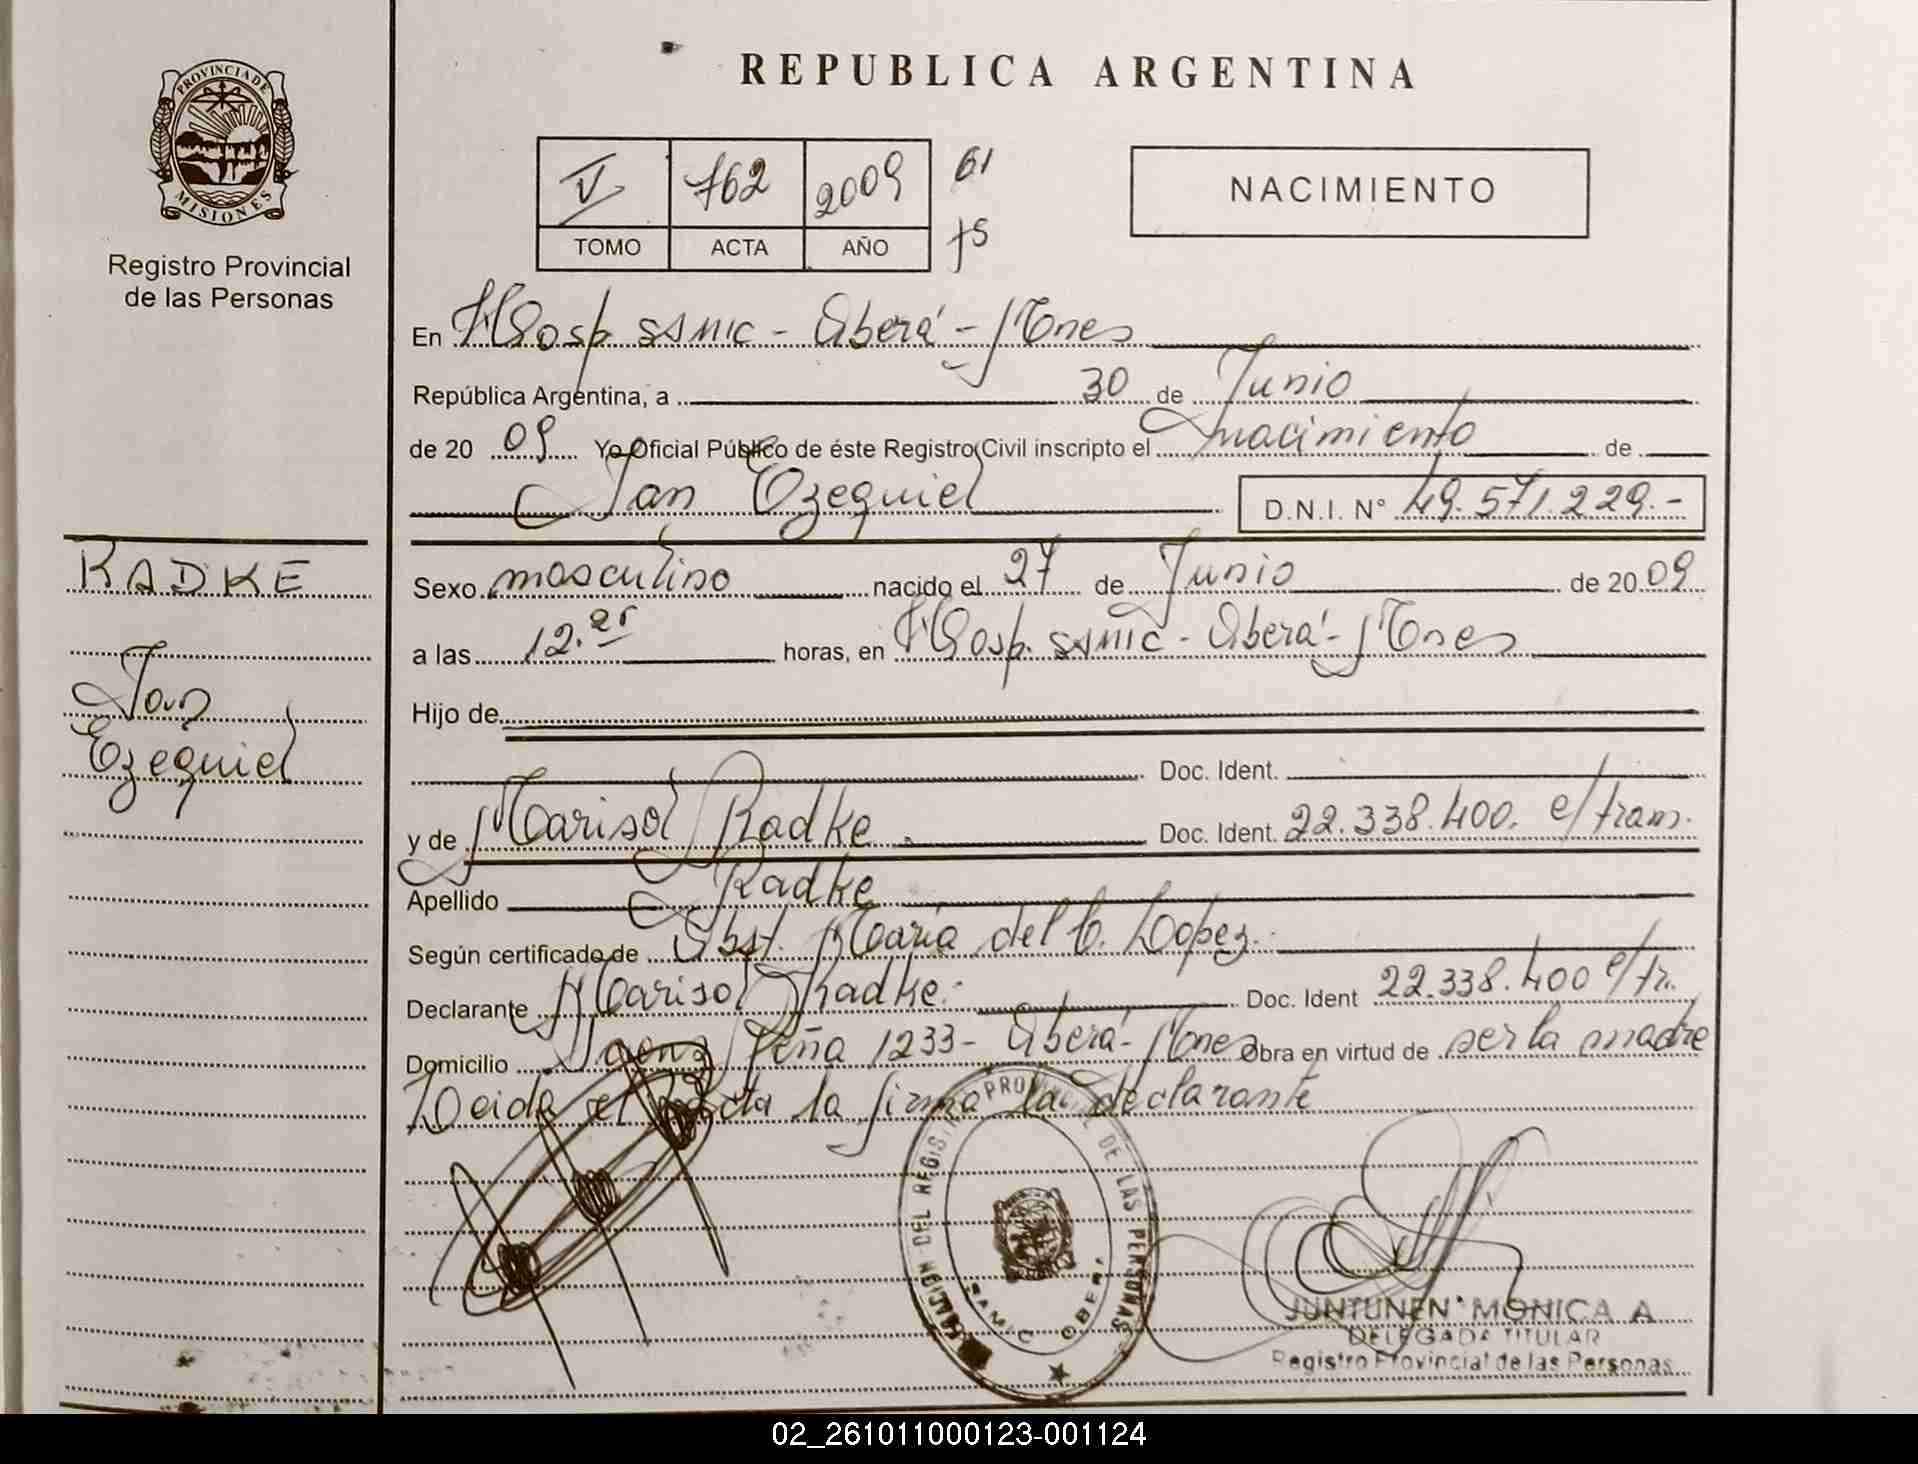 REPUBLICA ARGENTINA
PROVINCIA DE
MISIONES
Registro Provincial
de las Personas
V 762 2009 61
TOMO ACTA AÑO
NACIMIENTO
En Hosp SAMIC - Oberá - Mones
República Argentina, a 30 de Junio
de 20 09 Yo Oficial Público de éste Registro Civil inscripto el nacimiento de
Ian Ezequiel D.N.I. N° 49.571.229.-
RADKE
Ian
Ezequiel
Sexo masculino nacido el 27 de Junio de 20 09
a las 12. horas, en Hosp. SAMIC - Oberá - Mones
Hijo de
Doc. Ident.
y de Marisol Radke. Doc. Ident. 22.338.400. e/tram.
Apellido Radke
Según certificado de Obst. María del C. Lopez.
Declarante Marisol Radke.- Doc. Ident 22.338.400 e/tr.
Domicilio Saenz Peña 1233 - Oberá - Mones Obra en virtud de ser la madre
Leida el acta la firma la declarante
PROVINCIAL DE LAS PERSONAS
DEL REGISTRO
SAMIC OBERA
JUNTUNEN MONICA A
DELEGADA TITULAR
Registro Provincial de las Personas
02_261011000123-001124